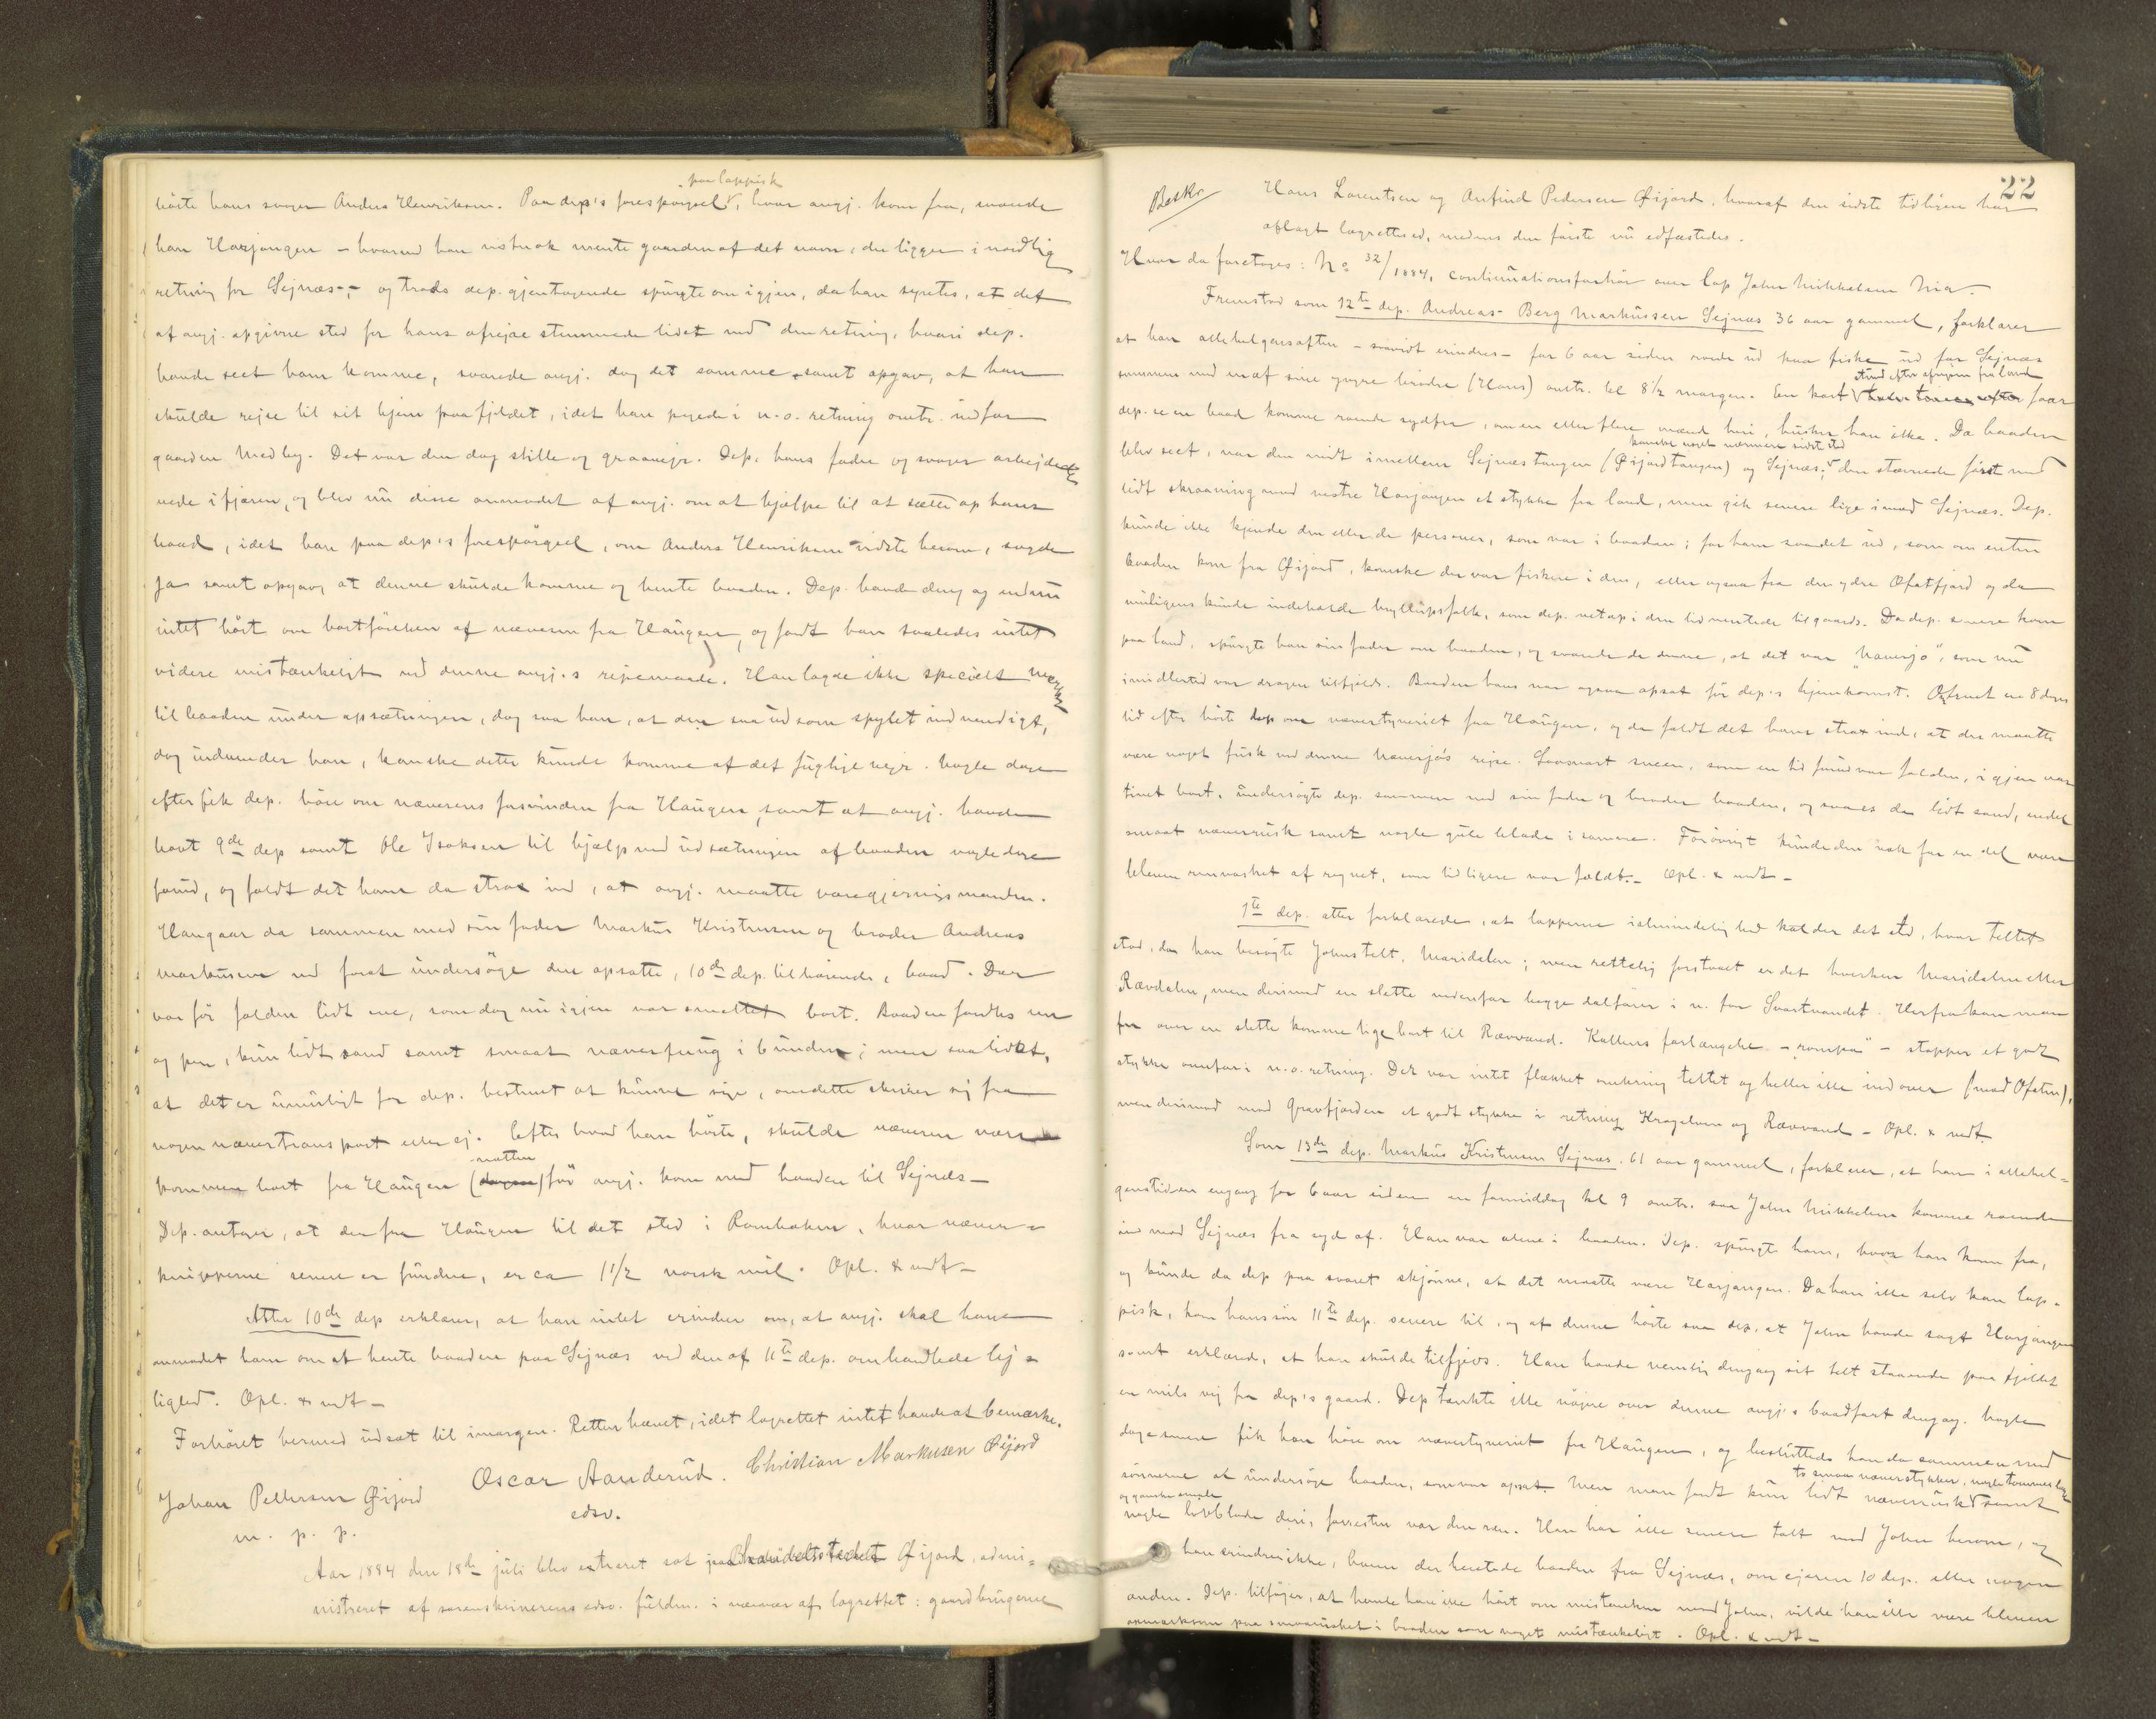 paa lappisk
hørte hans svoger Anders Henriksen. Paa dep's forespørgsel, hvor angj. kom fra, svarede
han Harjangen – hvormed han nistnok mente gaarden af det navn, der ligger i nordlig
retning for Sejnæs –, og trods dep. gjentagende spurgte om igjen, da han syntes, at det
af angj. opgivne sted for hans afrejse stemmede lidet med den retning, hvori dep.
havde seet ham komme, svarede angj. dog det samme samt opgav, at han
skulde rejse til sit hjem paa fjeldet, idet han pegede i n.o. retning omtr. indfor
gaarden Medby. Det var den dag stille og graavejr. Dep, hans fader og svoger arbejdede
nede i fjæren, og blev nu disse anmodet af angj. om at hjælpe til at sætte op hans
baad, idet han paa dep's forespørgsel, om Anders Henriksen vidste herom, sagde
ja samt opgav, at denne skulde komme og hente baaden. Dep. havde deng. og endnu
intet hørt om bortførelsen af næveren fra Haugen, og fandt han saaledes intet
videre mistænkeligt ved denne angj.s rejsemaade. Han lagde ikke specielt mærke
til baaden under opsætningen, dog saa han, at den saa ud som spylet indvendigt,
dog indvender han, kanske dette kunde komme af det fugtige vejr. Nogle dage
efter fik dep. høre om næverens forsvinden fra Haugen, samt at angj. havde
havt 9de dep samt Ole Isaksen til hjælp ved udsætningen af baaden nogle dage
forud, og faldt det ham da strax ind, at angj. maatte være gjerningsmanden.
Han gaar da sammen med sin fader Markus Kristensen og broder Andreas
Markusen ned forat undersøge den opsatte, 10de dep. tilhørende, baad. Der
var før falden lidt sne, som dog nu igjen var smeltet bort. Baaden fandtes ren
og pen, kun lidt sand samt smaat næverfnug i bunden; men saa lidet,
at det er umuligt for dep. bestemt at kunne sige, om dette skriver sig fra
nogen nævertransport eller ej. Efter hvad han hørte, skulde næveren være
natten
kommen bort fra Haugen (dagen) før angj. kom med baaden til Sejnæs –
Dep. antager, at der fra Haugen til det sted i Rombaken, hvor næver-
knipperne senere er fundne, er ca 1 1/2 norsk mil. Opl. & vedt –
Atter 10de dep erklærer, at han intet erindrer om, at angj. skal have
anmodet ham om at hente baaden paa Sejnæs ved den af 11te dep. omhandlede lej-
lighed. Opl. & vedt –
Forhøret hermed udsat til imorgen. Retten hævet, idet lagrettet intet havde at bemærke.
Oscar Aanderud. Christian Markusen Øijord
Johan Pettersen Øijord edsv.
m. p. p.
Aar 1884 den 18de juli blev extraret sat paa handelsstedet Øijord, admi-
nistreret af sorenskriverens edsv. fuldm. i nærvær af lagrettet: gaardbrugerne
22
Beskr
Hans Lorentsen og Anfind Pedersen Øijord, hvoraf den sidste tidligere har
aflagt lagretteed, medens den første nu edfæstedes.
Hvor da foretoges: No 32/1884, continuationsforhør over lap John Mikkelsen Nia.
Fremstod som 12te dep. Andreas Berg Markussen Sejnæs 36 aar gammel, forklarer
at han allehelgensaften – saavidt erindres – for 6 aar siden roede ud paa fiske ud for Sejnæs
stund efter afrejsen fra land
sammen med en af sine yngre brødre (Hans) omtr. kl 8 1/2 morgen. En kort faar
dep. se en baad komme roende sydfra, om en eller flere mænd heri, husker han ikke. Da baaden
kanske noget nærmere sidste sted
blev seet, var den midt imellem Sejnæstangen (Øijordtangen) og Sejnæs; den stævnede først med
lidt skraaning mod vestre Harjangen et stykke fra land, men gik senere lige imod Sejnæs. Dep.
kunde ikke kjende den eller de personer, som var i baaden; for ham saa det ud, som om enten
baaden kom fra Øijord, kanske der var fiskere i den, eller ogsaa fra den ydre Ofotfjord og da
muligens kunde indeholde bryllupsfolk, som dep. netop i den tid ventede tilgaards. Da dep. senere kom
paa land, spurgte han sin fader om baaden, og svarede da denne, at det var "Naverjo", som nu
imidlertid var dragen tilfjelds. Baaden hans var ogsaa opsat før dep's hjemkomst. Omtrent en 8 dages
tid efter hørte dep om nævertyveriet fra Haugen, og da faldt det ham strax ind, at der maatte
være noget fusk ved denne Naverjo's rejse. Saasnart sneen, som en tid forud var falden, igjen var
tinet bort, undersøgte dep. sammen med sin fader og broder baaden, og saaes der lidt sand, endel
smaat næverrusk samt nogle gule blade i samme. Forøvrigt kunde den nok for en del være
bleven renvasket af regnet, som tidligere var faldt. – Opl. & vedt –
1te dep. atter forklarede, at lapperne i almindelighed kalder det sted, hvor teltet
stod, da han besøgte Johns telt, Maridalen; men rettelig forstaaet er det hverken Maridalen eller
Rævdalen, men derimod en slette nedenfor begge dalfører i n. for Svartvandet. Herfra kan man
før over en slette komme lige bort til Rævvand. Kallens forlængelse – "rompa" – stopper et godt
stykke ovenfor i n.o. retning. Det var intet flækket omkring teltet og heller ikke ind over (mod Ofoten),
men derimod mod Gravfjorden et godt stykke i retning Kragelven og Rævvand – Opl. & vedt.
Som 13de dep. Markus Kristensen Sejnæs, 61 aar gammel, forklarer, at han i allehel-
genstiden engang for 6 aar siden en formiddag kl 9 omtr. saa John Mikkelsen komme roende
ind mod Sejnæs fra syd af. Han var alene i baaden. Dep. spurgte ham, hvor han kom fra,
og kunde da dep paa svaret skjønne, at det maatte være Harjangen. Da han ikke selv kan lap-
pisk, kom hans søn 11te dep. senere til, og af denne hørte saa dep. at John havde sagt Harjangen
samt erklæred, at han skulde tilfjelds. Han havde nemlig dengang sit telt staaende paa fjellet
en mils vej fra dep's gaard. Dep tænkte ikke nøjere over denne angj's baadfart dengang. Nogle
dage senere fik han høre om nævertyveriet fra Haugen, og besluttede han da sammen med
to smaa næverstykker, nogle tommer lange
sønnerne at undersøge baaden, som var opsat. Men man fandt kun lidt næverrusk samt
og ganske smale
nogle løvblade deri, forresten var den ren. Han har ikke senere talt med John herom, og
han erindrer ikke, hvem der hentede baaden fra Sejnæs, om ejeren 10 dep. eller nogen
anden. Dep. tilføjer, at havde han ikke hørt om mistanken mod John, vilde han ikke være bleven
opmærksom paa smaarusket i baaden som noget mistænkeligt. Opl. & vedt –